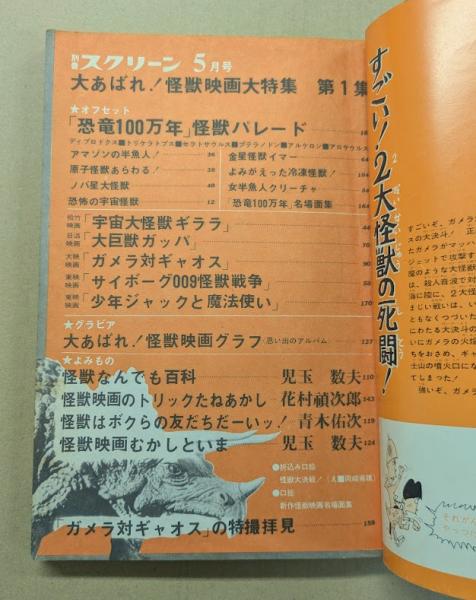 別冊 スクリーン 5月号
大あばれ！怪獣映画大特集 第1集
★オフセット
「恐竜100万年」怪獣パレード
ディプロドクス■トリケラトプス■セラトサウルス■プテラノドン■アルケロン■アロサウルス
アマゾンの半魚人！ 36
金星怪獣イマー 64
原子怪獣あらわる！ 38
よみがえった冷凍怪獣！ 104
ノバ星大怪獣 40
女半魚人クリーチャ 54
恐怖の宇宙怪獣 12
「恐竜100万年」名場面集 164
松竹映画「宇宙大怪獣ギララ」 44
日活映画「大巨獣ガッパ」 76
大映映画「ガメラ対ギャオス」 90
東映映画「サイボーグ009怪獣戦争」 58
東映映画「少年ジャックと魔法使い」 170
★グラビア
大あばれ！怪獣映画グラフ 思い出のアルバム 127
★よみもの
怪獣なんでも百科 児玉 数夫 110
怪獣映画のトリックたねあかし 花村禎次郎 143
怪獣はボクらの友だちだーいッ！ 青木佑次 119
怪獣映画むかしといま 児玉 数夫 124
●折込み口絵
怪獣大決戦！
●口絵
新作怪獣映画名場面集
「ガメラ対ギャオス」の特撮拝見 159
すごい！2大怪獣の死闘！
すごいぞ、ガメラ
スの大決斗！ 正
たガメラがマッハ
ジェットで攻撃す
魔のような大怪獣
は、殺人音波で対
海に陸に、2大怪
まじい戦いは、い
ともなくつづいた
にわたる大決斗の
いにガメラの火焔
ちをおさめ、ギャ
士山の噴火口にな
てしまう！
強いぞ、ガメラ